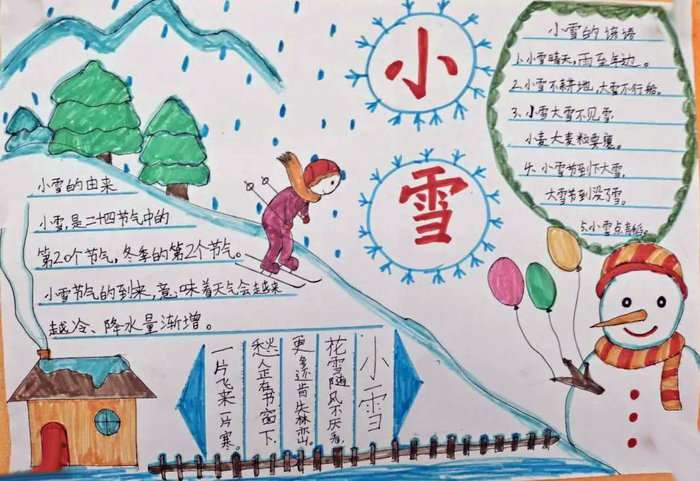 小
雪
小雪的谚语
1.小雪晴天,雨至年边。
2.小雪不耕地,大雪不行船。
3.小雪大雪不见雪
小麦大麦粒要瘪。
4.小雪节到下大雪,
大雪节到没了雪。
5.小雪点青稻。
小雪的由来
小雪,是二十四节气中的
第20个节气,冬季的第2个节气。
小雪节气的到来,意味着天气会越来
越冷、降水量渐增。
小雪
花雪随风不厌看,
更多还肯失林峦。
愁人正在书窗下,
一片飞来一片寒。